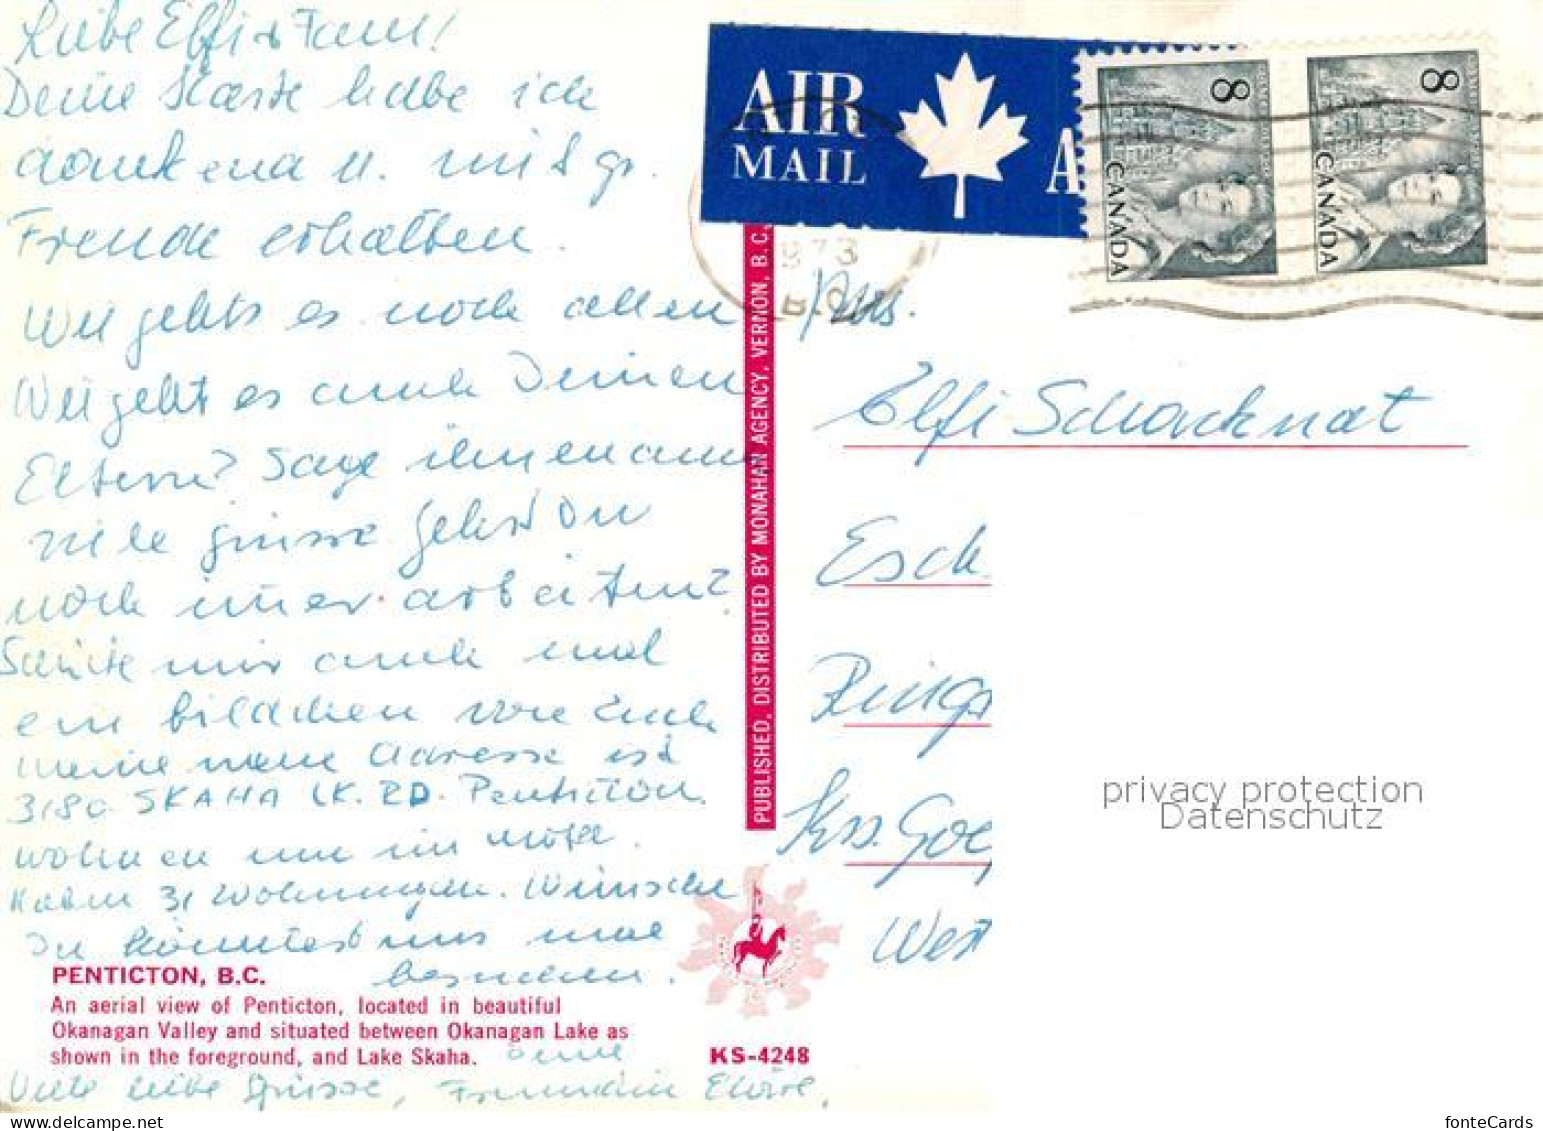 Liebe Elfi & Fam!
Deine Karte habe ich
dankend u. mit gr.
Freude erhalten.
Wie gehts es noch allen
Wie gehts es auch Deinen
Eltern? Sage ihnen auch
viele grüsse Gehst Du
noch imer arbeiten?
Schicke mir auch mal
ein bildchen von Euch
meine neue Adresse ist
3180 SKAHA LK. RD. Penticton.
wohnen nun im Motel.
Haben 31 Wohnungen. Wünsche
Du könntest uns mal
besuchen.
Deine
Viele liebe Grüsse, Freundin
PENTICTON, B.C.
An aerial view of Penticton, located in beautiful
Okanagan Valley and situated between Okanagan Lake as
shown in the foreground, and Lake Skaha.
KS-4248
PUBLISHED, DISTRIBUTED BY MONAHAN AGENCY, VERNON, B.C.
AIR
MAIL
A
8
CANADA
8
CANADA
973
B.C.
Mrs.
Elfi Schacknat
Esch
Krs. Goe
West
privacy protection
Datenschutz
fonteCards